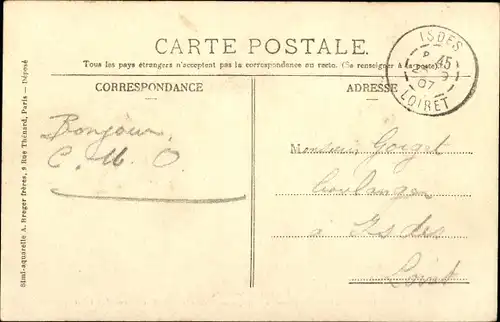 CARTE POSTALE.
Tous les pays étrangers n'acceptent pas la correspondance au recto. (Se renseigner à la poste).
CORRESPONDANCE
ADRESSE
ISDES
15
07
LOIRET
Bonjour
C. M. O
Monsieur Goiget
boulanger
à Isdes
Loiret
Simi-aquarelle A. Breger frères, 9 Rue Thénard, Paris — Déposé